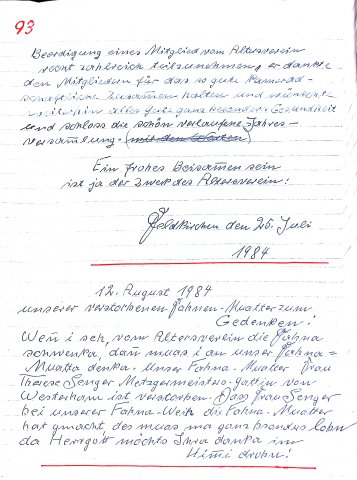 93
Beerdigung eines Mitglied vom Altersverein
recht zahlreich teilzunehmen, er dankte
den Mitgliedern für das so gute Kamerad-
schaftliche Zusammen halten und wünschte
weiterhin alles Gute ganz besonders Gesundheit
und schloss die schön verlaufene Jahres-
versammlung. (mit den Worten)
Ein frohes Beisamen sein
ist ja der Zweck des Altersverein!
Feldkirchen den 25. Juli
1984
12. August 1984
unserer verstorbenen Fahnen-Muatter zum
Gedenken!
Wen̄ i seh, vom Altersverein die Fahna
schwenka, dan muas i an unser Fahna=
Muatta denka. Unser Fahna-Muatter Frau
Therese Senger Metzgermeisters-Gattin von
Westerham ist verstorben. Dass Frau Senger
bei unserer Fahna-Weih die Fahna-Muatter
hat gmacht des muas ma ganz bsonders lobn
da Herrgott möchts Ihra danka im
Himi drobn!